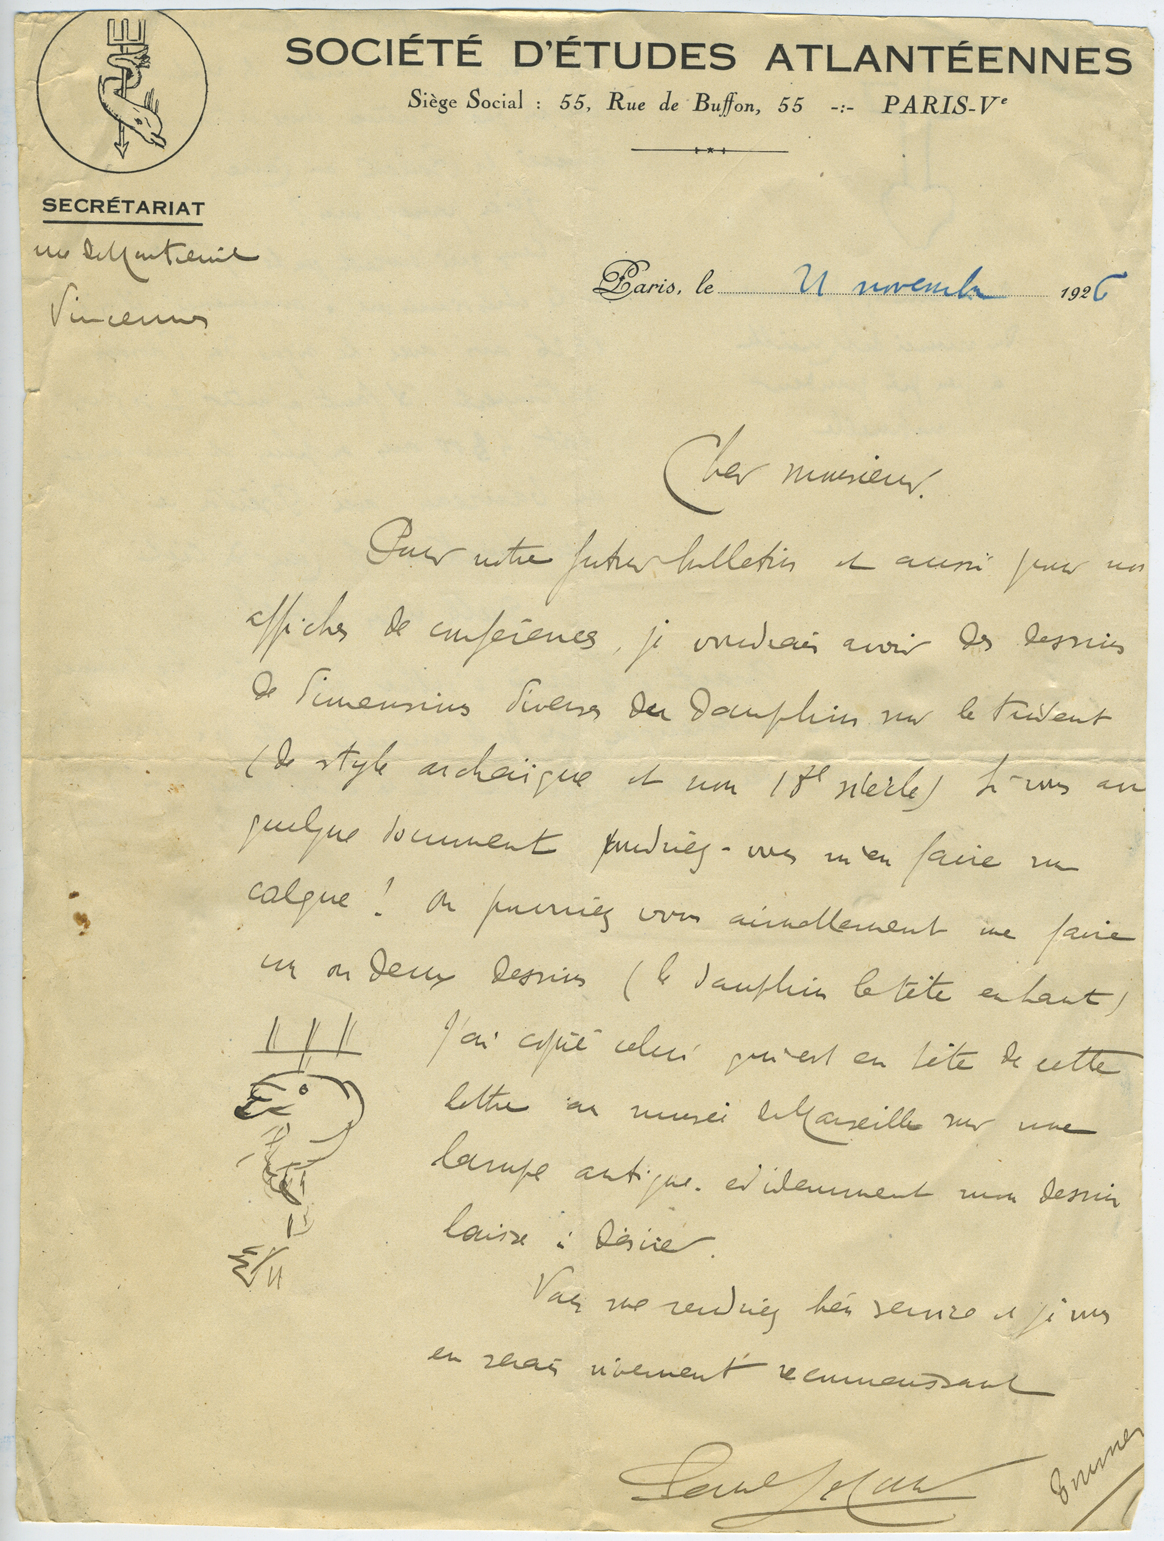 SOCIÉTÉ D'ÉTUDES ATLANTÉENNES
Siège Social : 55, Rue de Buffon, 55 -:- PARIS-Vᵉ
SECRÉTARIAT
rue de Montreuil
Vincennes
Paris, le 21 novembre 1926
Cher monsieur.
Pour notre futur bulletin et aussi pour nos
affiches de conférences, je voudrais avoir des dessins
de dimensions diverses du dauphin sur le trident
(de style archaïque et non 18e siècle) Si vous avez
quelque document voudriez-vous m'en faire un
calque ! Ou pourriez vous me faire
un ou deux dessins (le dauphin la tête en haut)
J'ai copié celui qui est en tête de cette
lettre au musée de Marseille sur une
lampe antique. evidemment mon dessin
laisse à désirer.
Vous me rendriez bien service et je vous
en serais vivement reconnaissant
Paul